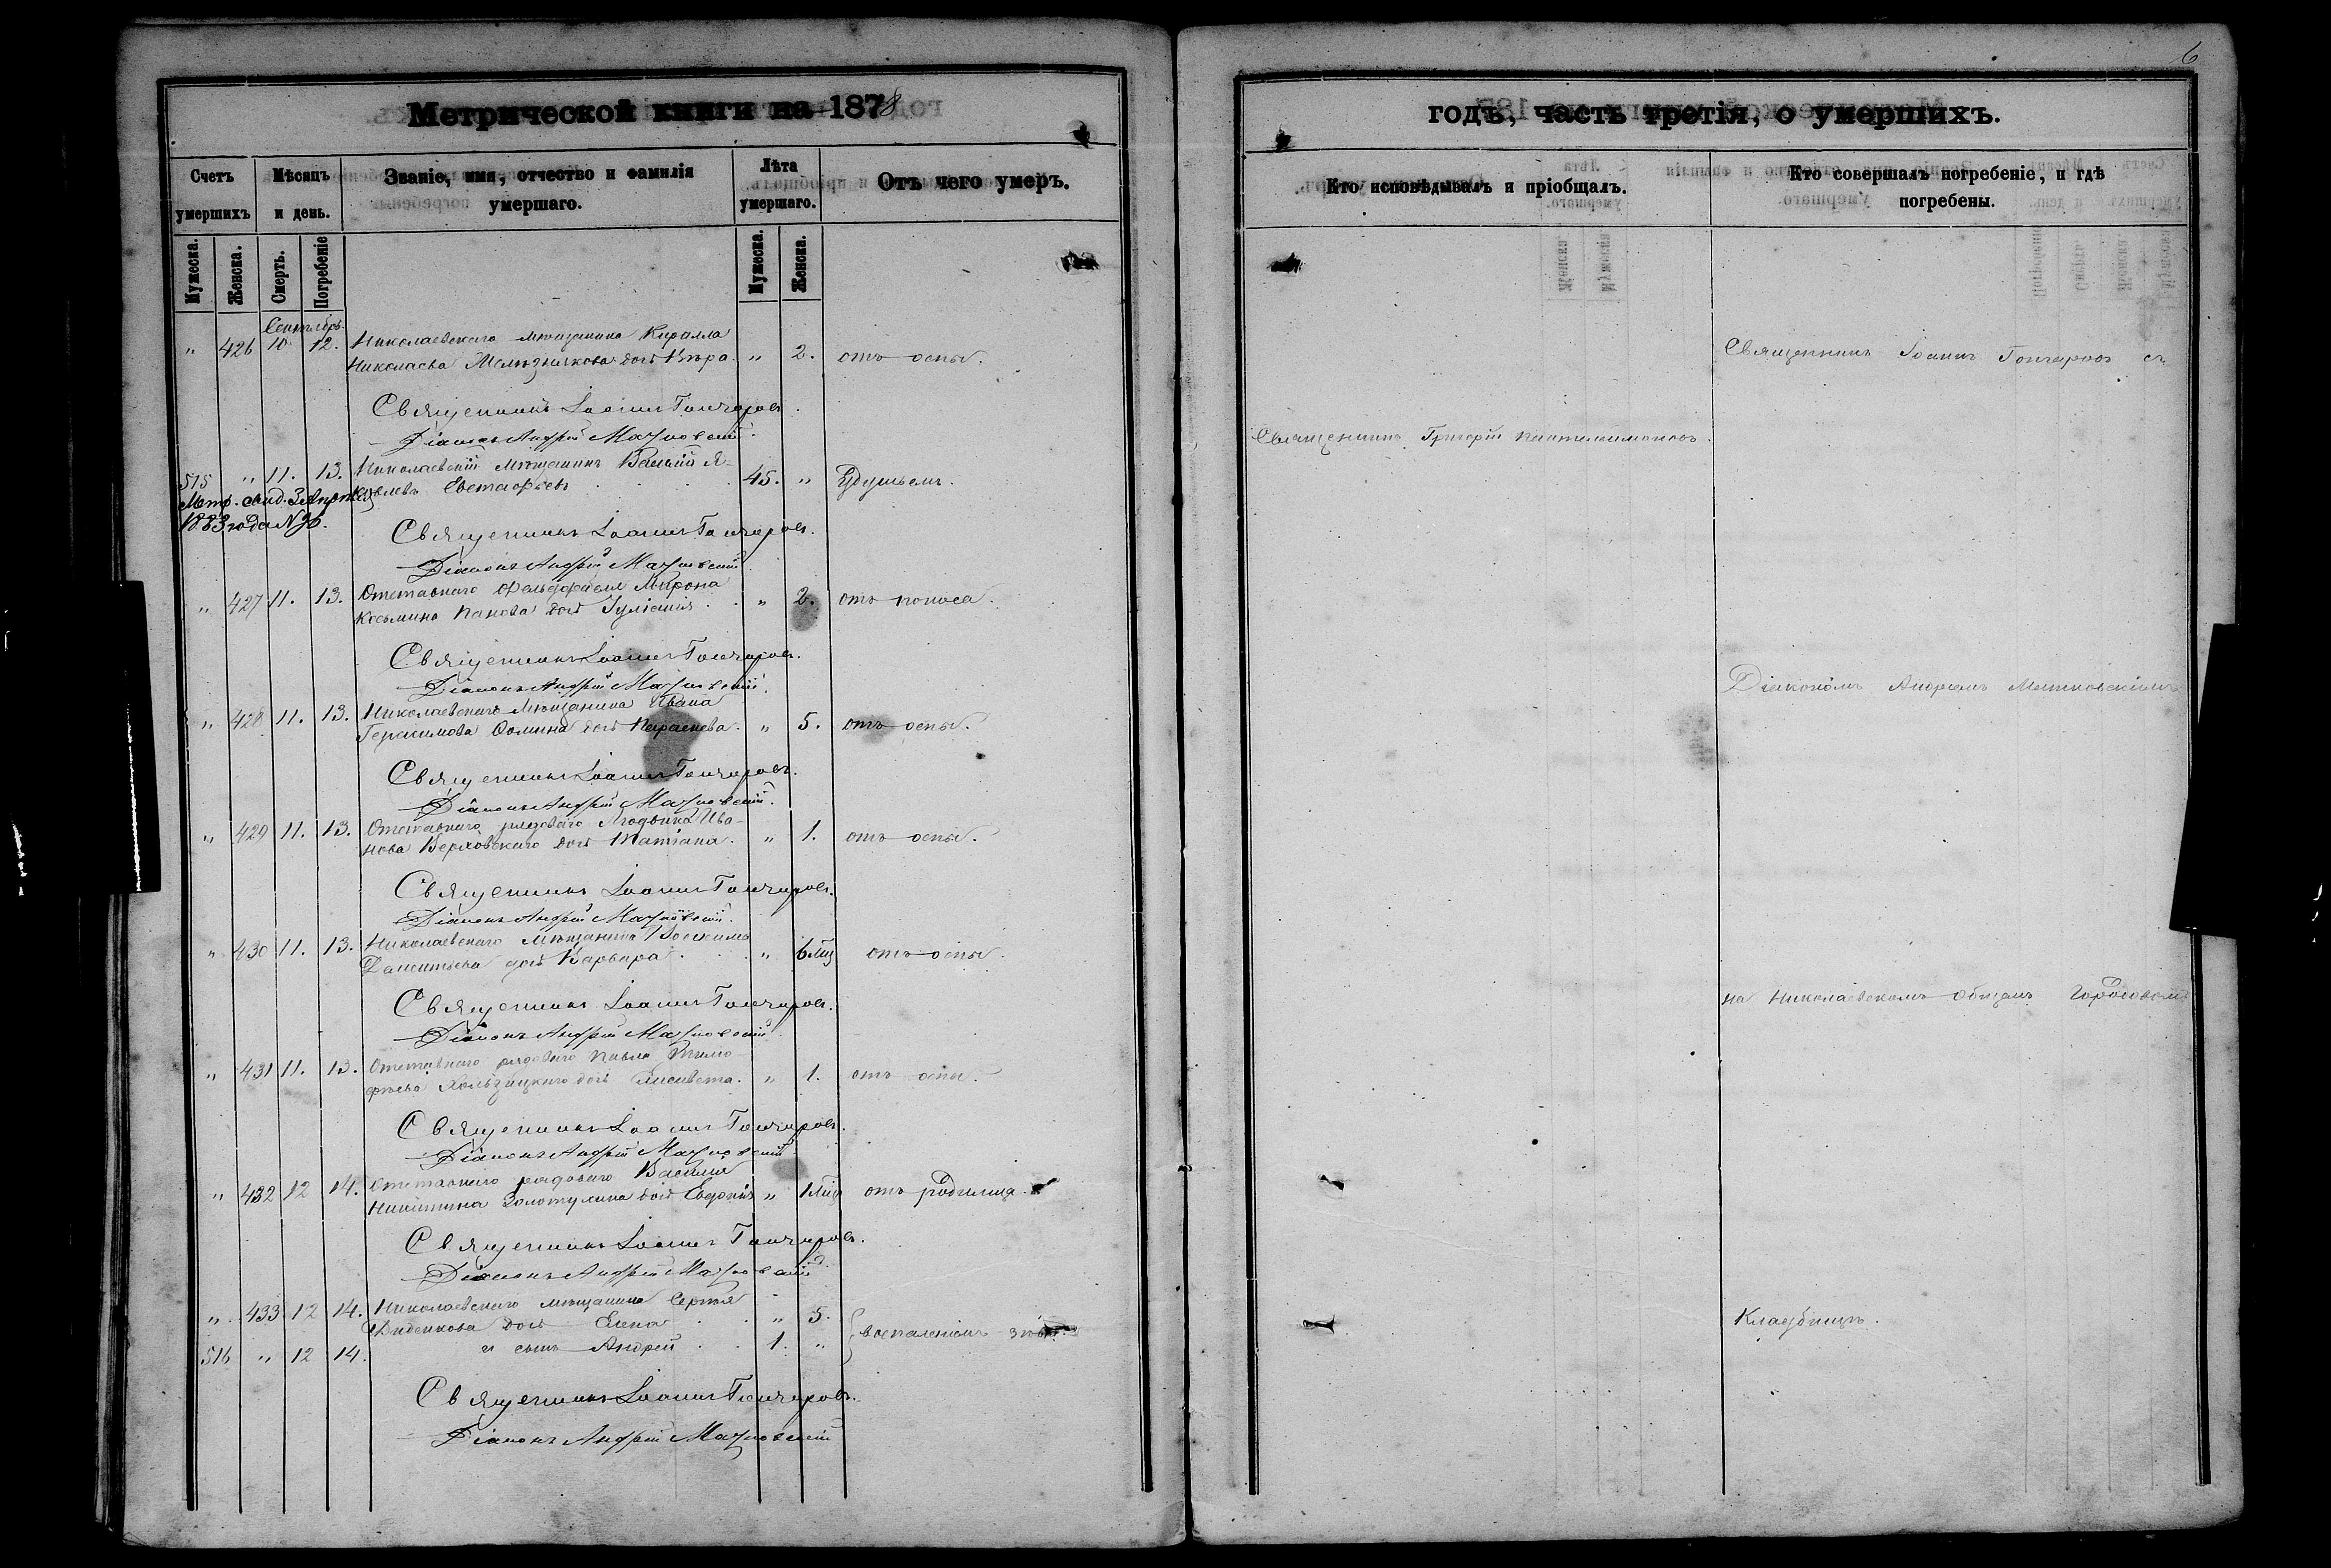 6
Метрической книги на 1878
годъ, часть третія, о умершихъ.
Счетъ умершихъ
Мѣсяцъ и день.
Званіе, имя, отчество и фамилія умершаго.
Лѣта умершаго.
Отъ чего умеръ.
Кто исповѣдывалъ и пріобщалъ.
Кто совершалъ погребеніе, и гдѣ погребены.
Мужеска. Женска. Смерть. Погребеніе
Мужеска. Женска.
Сентябрь.
" 426 10 12. Николаевскаго мѣщанина Кирилла
Николаева дочь Вѣра. " 2. отъ оспы.
Священникъ Іоаннъ Гончаровъ съ
Священникъ Іоаннъ Гончаровъ.
Діаконъ Андрей
Священникъ Григорій Пантелеимоновъ.
515 " 11. 13. Николаевскій мѣщанинъ Василій Я-
ковлевъ Евстафьевъ 45. " Удушьемъ.
Метр. свид. 3 Апрѣля
1883 года N 36.
Священникъ Іоаннъ Гончаровъ.
Діаконъ Андрей
" 427 11. 13. Отставного Фельдфебеля Мирона
Косьмина Панова дочь Іуліанія. " 2. отъ поноса.
Священникъ Іоаннъ Гончаровъ.
Діаконъ Андрей
Діакономъ Андреемъ
" 428 11. 13. Николаевскаго мѣщанина Ивана
Герасимова Ѳомина дочь Параскева. " 5. отъ оспы.
Священникъ Іоаннъ Гончаровъ.
Діаконъ Андрей
" 429 11. 13. Отставнаго рядоваго Ива-
нова Верховскаго дочь Татіана. " 1. отъ оспы.
Священникъ Іоаннъ Гончаровъ.
Діаконъ Андрей
" 430 11. 13. Николаевскаго мѣщанина
дочь Варвара. " 6 мц отъ оспы.
на Николаевскомъ общемъ Городовомъ
Священникъ Іоаннъ Гончаровъ.
Діаконъ Андрей
" 431 11. 13. Отставнаго рядоваго Павла Тимо-
фѣева дочь Елисавета. " 1. отъ оспы.
Священникъ Іоаннъ Гончаровъ.
Діаконъ Андрей
" 432 12 14. Отставнаго рядоваго Василія
Никитина Золотухина дочь Евдокія " 1 мц отъ родимца.
Священникъ Іоаннъ Гончаровъ.
Діаконъ Андрей
" 433 12 14. Николаевскаго мѣщанина Сергѣя
Диденкова дочь Елена " 5.
воспаленіемъ
Кладбищѣ.
516 " 12 14. и сынъ Андрей 1. "
Священникъ Іоаннъ Гончаровъ.
Діаконъ Андрей